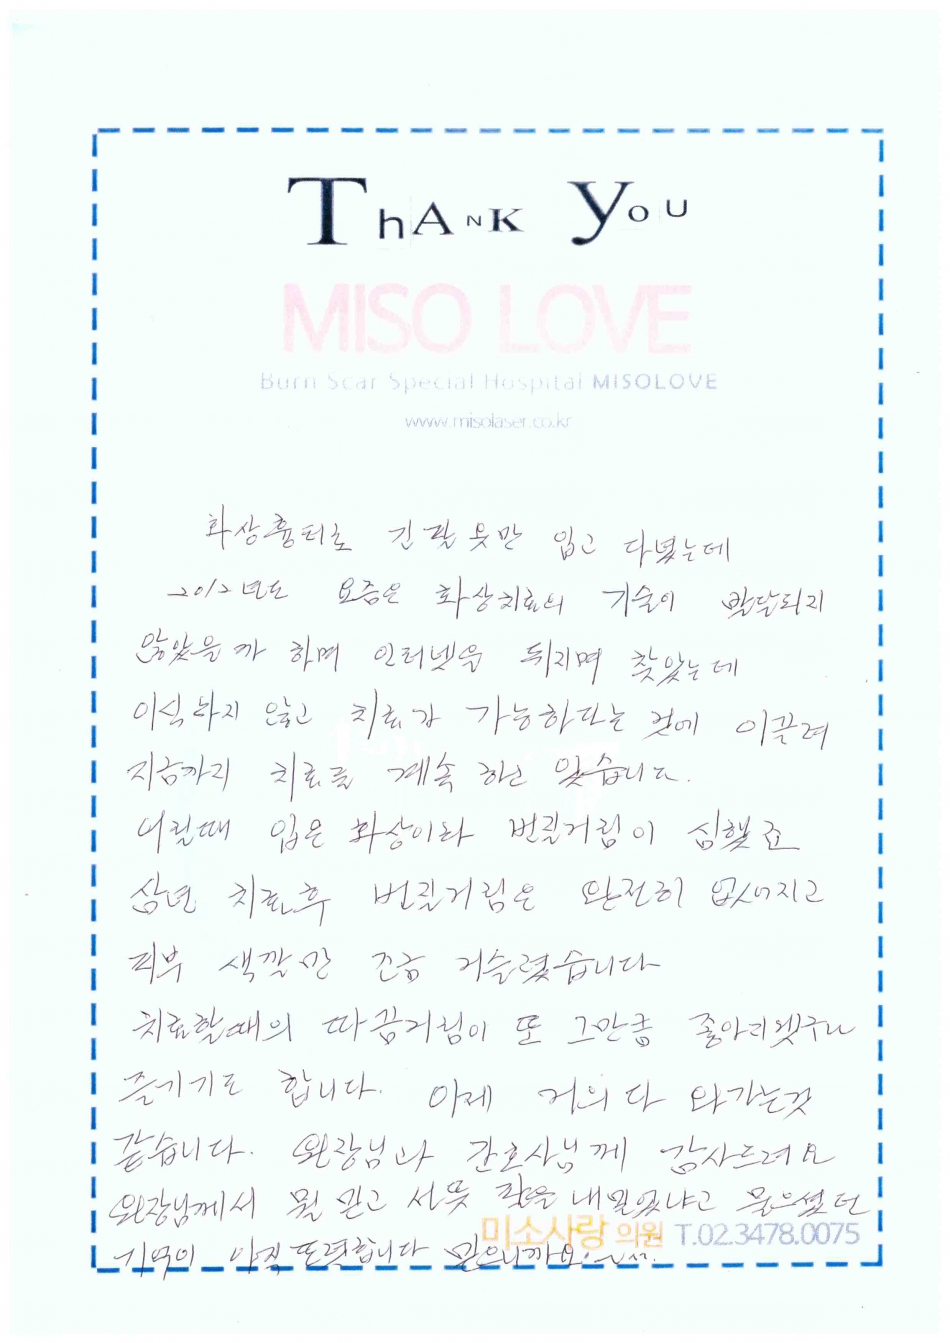 Thank You
MISO LOVE
Burn Scar Special Hospital MISOLOVE
www.misolaser.co.kr
화상흉터로 긴팔 옷만 입고 다녔는데
2012년도 요즘은 화상치료의 기술이 발달되지
않았을까 하며 인터넷을 뒤지며 찾았는데
이식하지 않고 치료가 가능하다는 것에 이끌려
지금까지 치료를 계속 하고 있습니다.
어릴때 입은 화상이라 번질거림이 심했죠
삼년 치료후 번질거림은 완전히 없어지고
피부 색깔만 조금 거슬렸습니다
치료할때의 따끔거림이 또 그만큼 좋아지겠구나
즐기기도 합니다. 이제 거의 다 와가는것
같습니다. 원장님과 간호사님께 감사드려요
원장님께서 뭘 믿고 선뜻 팔을 내밀었냐고 물으셨던
기억이 아직 또렷합니다 믿으니까요.
미소사랑 의원 T.02.3478.0075